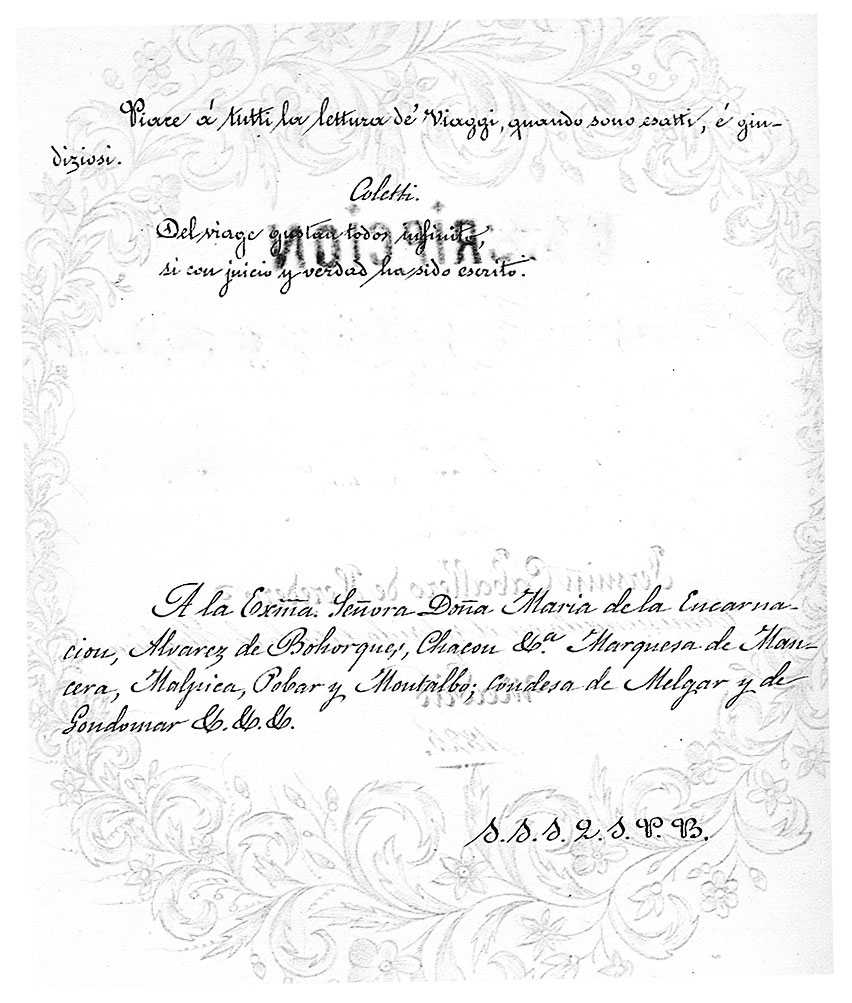 Piace á tutti la lettura de' Viaggi, quando sono esatti, é giu-
diziosi.
Coletti.
Del viage gustan todos infinito,
si con juicio y verdad ha sido escrito.
A la Exm̃a. Señora Doña Maria de la Encarna-
cion, Alvarez de Bohorques, Chacon &.ª Marquesa de Man-
cera, Malpica, Pobar y Montalbo; Condesa de Melgar y de
Gondomar &.&.&.
S.S.S.Q.S.P.B.